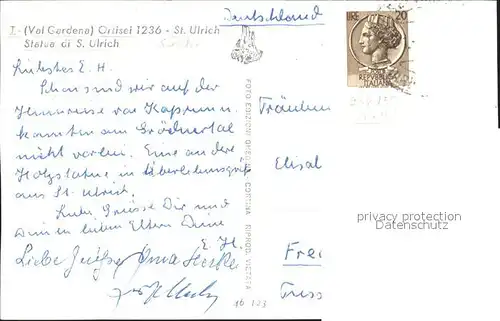 Deutschland
T.- (Val Gardena) Ortisei 1236 - St. Ulrich
Statue di S. Ulrich
LIRE 20
REPUBBLICA
ITALIANA
Liebstes E. H.
Schon sind wir auf der
Heimreise von Kaprun u.
konnten am Grödnertal
nicht vorbei. Eine andere
Holzstatue in Überlebensgröße
aus St. Ulrich.
Liebe Grüsse Dir und
Deinen lieben Eltern Deine
E. H.
Liebe Grüße Oma
FOTO EDIZIONI GHEDINA CORTINA RIPROD. VIETATA
Fräulein
Elisab
Frei
16 123
privacy protection
Datenschutz